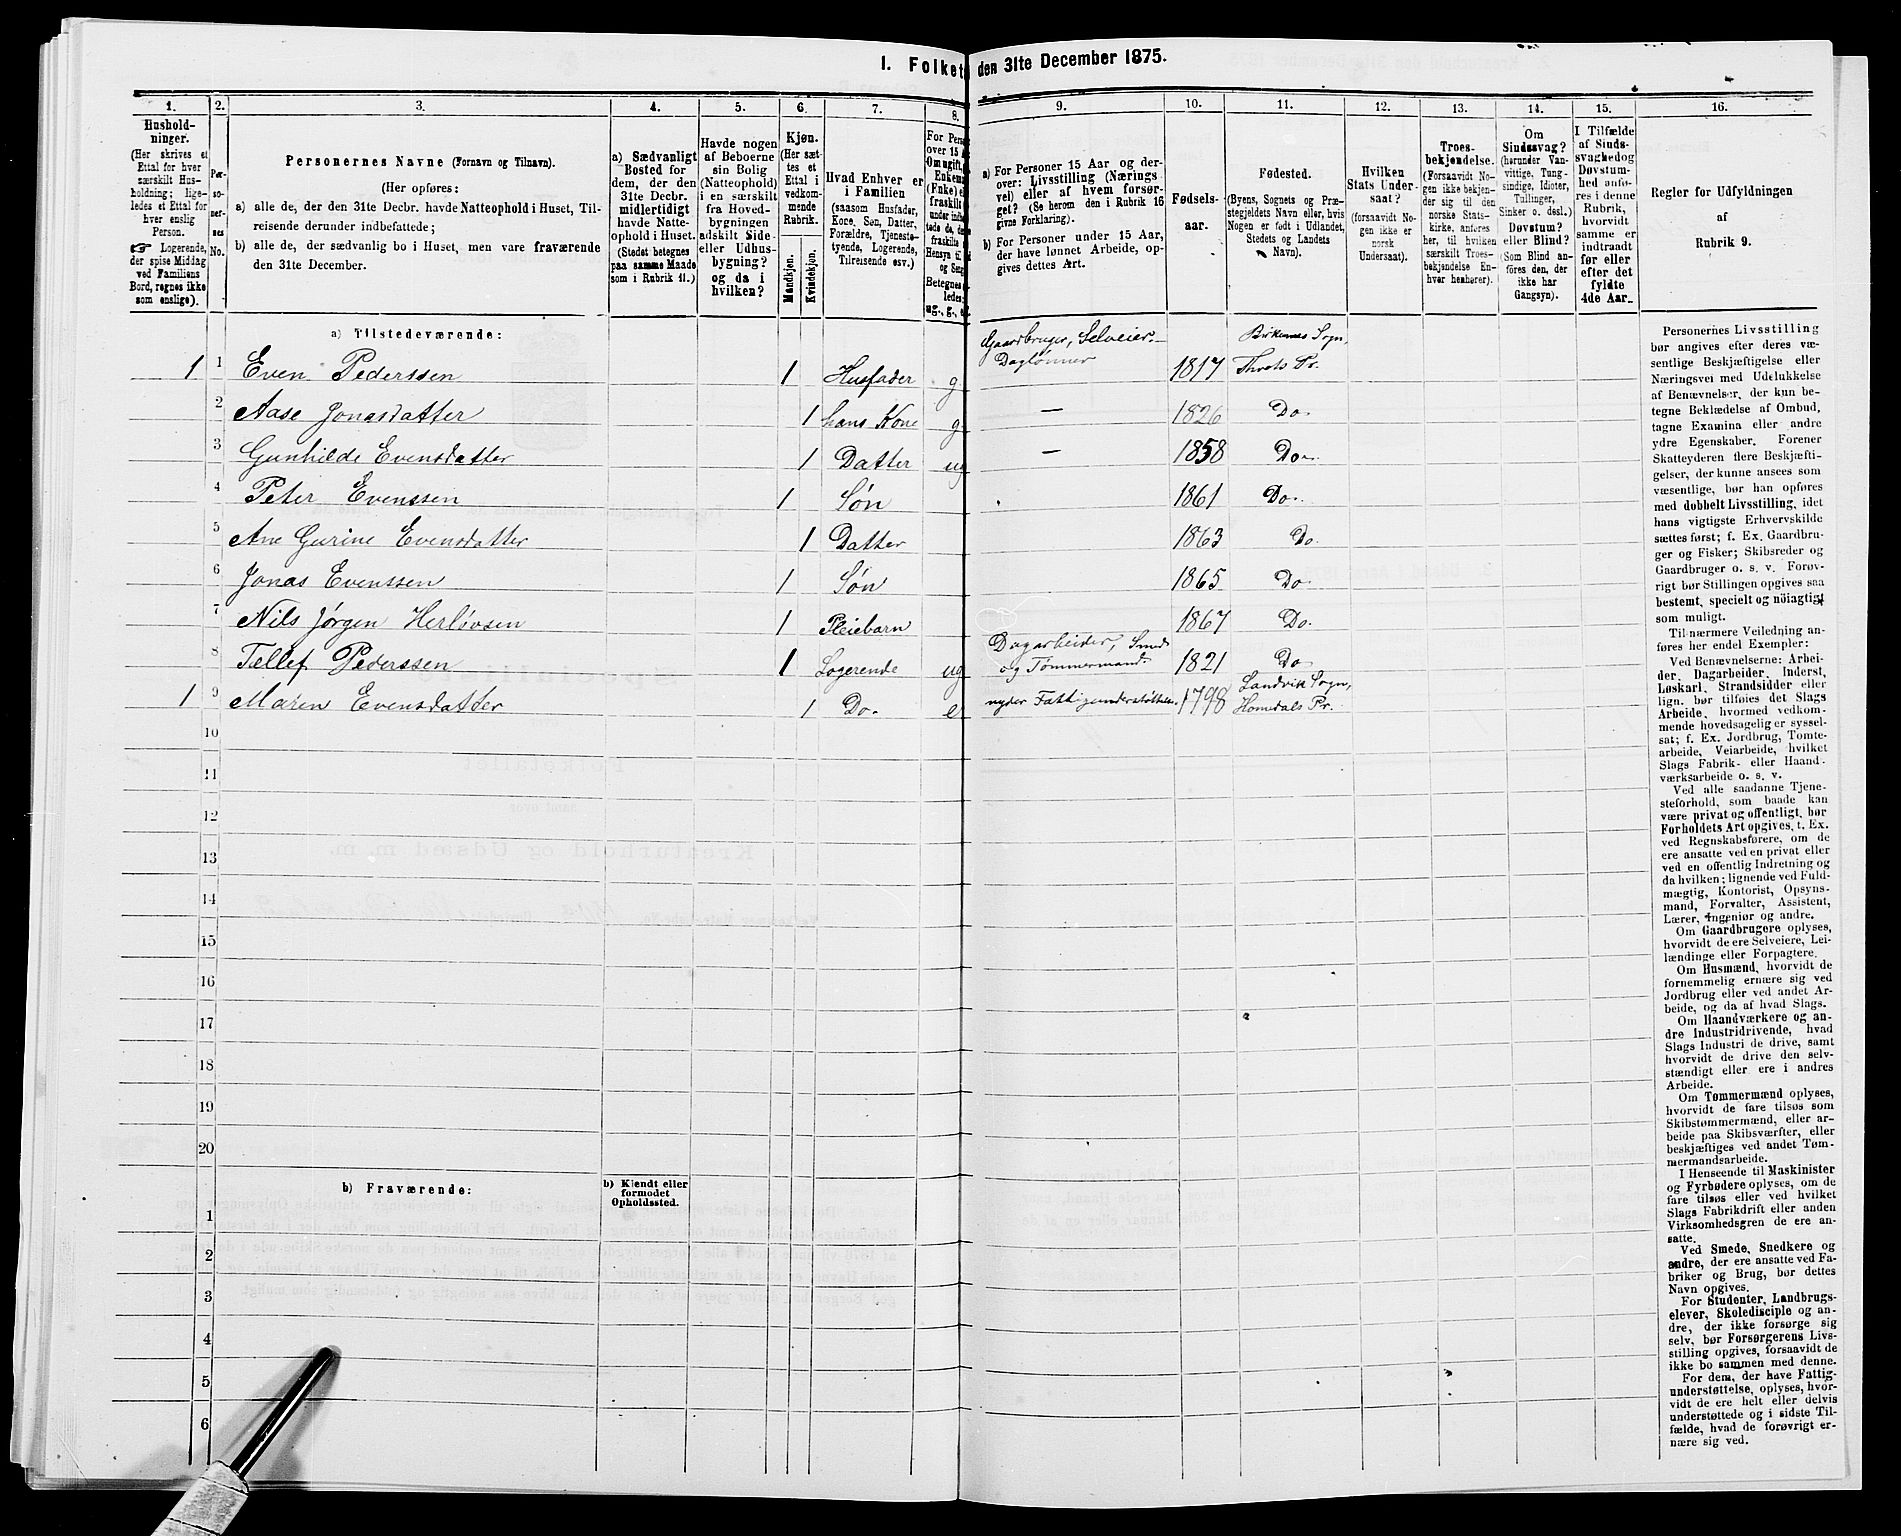 1. Folket den 31te December 1875.
1. 2. 3. 4. 5. 6. 7. 8. 9. 10. 11. 12. 13. 14. 15. 16.
Hushold-
ninger.
(Her skrives et
Ettal for hver
særskilt Hus-
holdning; lige-
ledes et Ettal for
hver enslig
Person.
☞ Logerende,
der spise Middag
ved Familiens
Bord, regnes ikke
som enslige).
Per-
so-
ner-
nes
No.
Personernes Navne (Fornavn og Tilnavn).
(Her opføres:
a) alle de, der den 31te Decbr. havde Natteophold i Huset, Til-
reisende derunder indbefattede;
b) alle de, der sædvanlig bo i Huset, men vare fraværende
den 31te December.
a) Sædvanligt
Bosted for
dem, der den
31te Decbr.
midlertidigt
havde Natte-
ophold i Huset.
(Stedet betegnes
paa samme Maade
som i Rubrik 11.)
Havde nogen
af Beboerne
sin Bolig
(Natteophold)
i en særskilt
fra Hoved-
bygningen
adskilt Side-
eller Udhus-
bygning?
og da i
hvilken?
Kjøn.
(Her sæt-
tes et
Ettal i
vedkom-
mende
Rubrik.
Mandkjøn.
Kvindekjøn.
Hvad Enhver er
i Familien
(saasom Husfader,
Kone, Søn, Datter,
Forældre, Tjeneste-
tyende, Logerende,
Tilreisende osv.)
For Pers
over 15
Om ugift,
Enkem
(Enke)
fraskilt
Hensyn til
og Seng
Betegnes
ledes:
ug., g., e.
a) For Personer 15 Aar og der-
over: Livsstilling (Nærings
vei) eller af hvem forsør-
get? (Se herom den i Rubrik 16
givne Forklaring).
b) For Personer under 15 Aar,
der have lønnet Arbeide, op-
gives dettes Art.
Fødsels-
aar.
Fødested.
(Byens, Sognets og Præ-
stegjeldets Navn eller, hvis
Nogen er født i Udlandet,
Stedets og Landets
Navn).
Hvilken
Stats Under-
saat?
(forsaavidt No-
gen ikke er
norsk
Undersaat).
Troes-
bekjendelse.
(Forsaavidt No-
gen ikke bekjen-
der sig til den
norske Stats-
kirke, anføres
her, til hvilken
særskilt Troes-
bekjendelse En-
hver henhører).
Om
Sindssvag?
(herunder Van-
vittige, Tung-
sindige, Idioter,
Tullinger,
Sinker o. desl.)
Døvstum?
eller Blind?
(Som Blind an-
føres den, der
ikke har
Gangsyn).
I Tilfælde
af Sinds-
svaghed og
Døvstum-
hed anfø-
res i denne
Rubrik,
hvorvidt
samme er
indtraadt
før eller
efter det
fyldte
4de Aar.
Regler for Udfyldningen
af
Rubrik 9.
a) Tilstedeværende:
1 1 Even Pederssen 1 Husfader g Gaardbruger, Selveier. Daglønner 1817 Birkenæs Sogn, Thvets Pr.
2 Aase Jonasdatter 1 hans Kone g — 1826 Do.
3 Gunhilde Evensdatter 1 Datter ug — 1858 Do.
4 Peter Evenssen 1 Søn 1861 Do.
5 Ane Gurine Evensdatter 1 Datter 1863 Do.
6 Jonas Evenssen 1 Søn 1865 Do.
7 Nils Jørgen Herløvsen 1 Pleiebarn 1867 Do.
8 Tellef Pederssen 1 Logerende ug Dagarbeider, Smed og Tømmermand. 1821 Do
1 9 Maren Evensdatter 1 Do. e nyder Fattigunderstøttelse. 1798 Landvik Sogn, Homedals Pr.
10
11
12
13
14
15
16
17
18
19
20
b) Fraværende:
b) Kjendt eller
formodet
Opholdssted.
1
2
3
4
5
6
Personernes Livsstilling
bør angives efter deres væ-
sentlige Beskjæftigelse eller
Næringsvei med Udelukkelse
af Benævnelser, der kun be-
tegne Beklædelse af Ombud,
tagne Examina eller andre
ydre Egenskaber. Forener
Skatteyderen flere Beskjæfti-
gelser, der kunne ansees som
væsentlige, bør han opføres
med dobbelt Livsstilling, idet
hans vigtigste Erhvervskilde
sættes først; f. Ex. Gaardbru-
ger og Fisker; Skibsreder og
Gaardbruger o. s. v. Forøv-
rigt bør Stillingen opgives saa
bestemt, specielt og nöiagtigt
som muligt.
Til nærmere Veiledning an-
føres her endel Exempler:
Ved Benævnelserne: Arbei-
der, Dagarbeider, Inderst,
Løskarl, Strandsidder eller
lign. bør tilføies det Slags
Arbeide, hvormed vedkom-
mende hovedsagelig er syssel-
sat; f. Ex. Jordbrug, Tomte-
arbeide, Veiarbeide, hvilket
Slags Fabrik- eller Haand-
værksarbeide o. s. v.
Ved alle saadanne Tjene-
steforhold, som baade kan
være privat og offentligt, bør
Forholdets Art opgives, t. Ex.
ved Regnskabsførere, om de
ere ansatte ved en privat eller
ved en offentlig Indretning og
da hvilken; lignende ved Fuld-
mægtig, Kontorist, Opsyns-
mand, Forvalter, Assistent,
Lærer, Ingeniør og andre.
Om Gaardbrugere oplyses,
hvorvidt de ere Selveiere, Lei-
lændinge eller Forpagtere.
Om Husmænd, hvorvidt de
fornemmelig ernære sig ved
Jordbrug eller ved andet Ar-
beide, og da af hvad Slags.
Om Haandværkere og an-
dre Industridrivende, hvad
Slags Industri de drive, samt
hvorvidt de drive den selv-
stændigt eller ere i andres
Arbeide.
Om Tømmermænd oplyses,
hvorvidt de fare tilsøs som
Skibstømmermænd, eller ar-
beide paa Skibsværfter, eller
beskjæftiges ved andet Tøm-
mermandsarbeide.
I Henseende til Maskinister
og Fyrbødere oplyses, om de
fare tilsøs eller ved hvilket
Slags Fabrikdrift eller anden
Virksomhedsgren de ere an-
satte.
Ved Smede, Snedkere og
andre, der ere ansatte ved Fa-
briker og Brug, bør dettes
Navn opgives.
For Studenter, Landbrugs-
elever, Skoledisciple og an-
dre, der ikke forsørge sig
selv, bør Forsørgerens Livs-
stilling opgives, forsaavidt de
ikke bo sammen med denne.
For dem, der have Fattig-
understøttelse, oplyses, hvor-
vidt de ere helt eller delvis
understøttede og i sidste Til-
fælde, hvad de forøvrigt er-
nære sig ved.